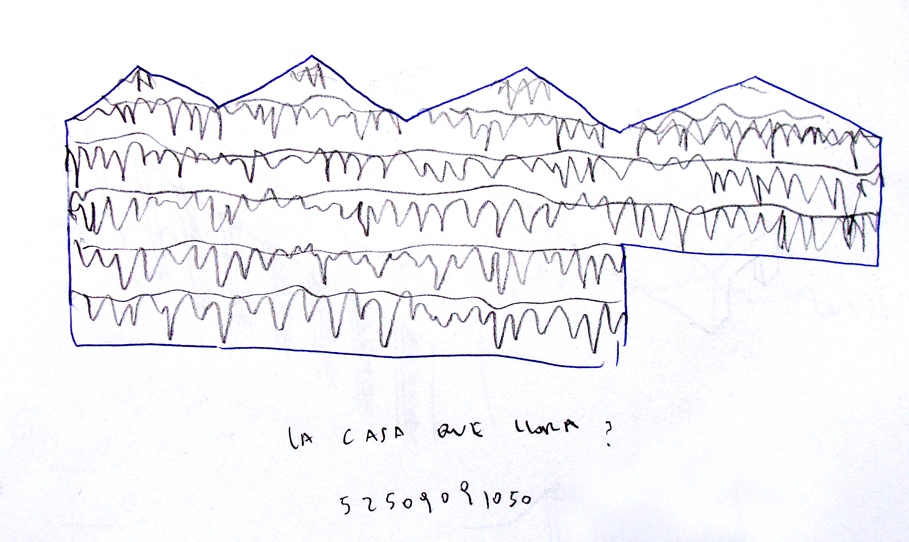 LA CASA QUE LLORA ?
52509091050